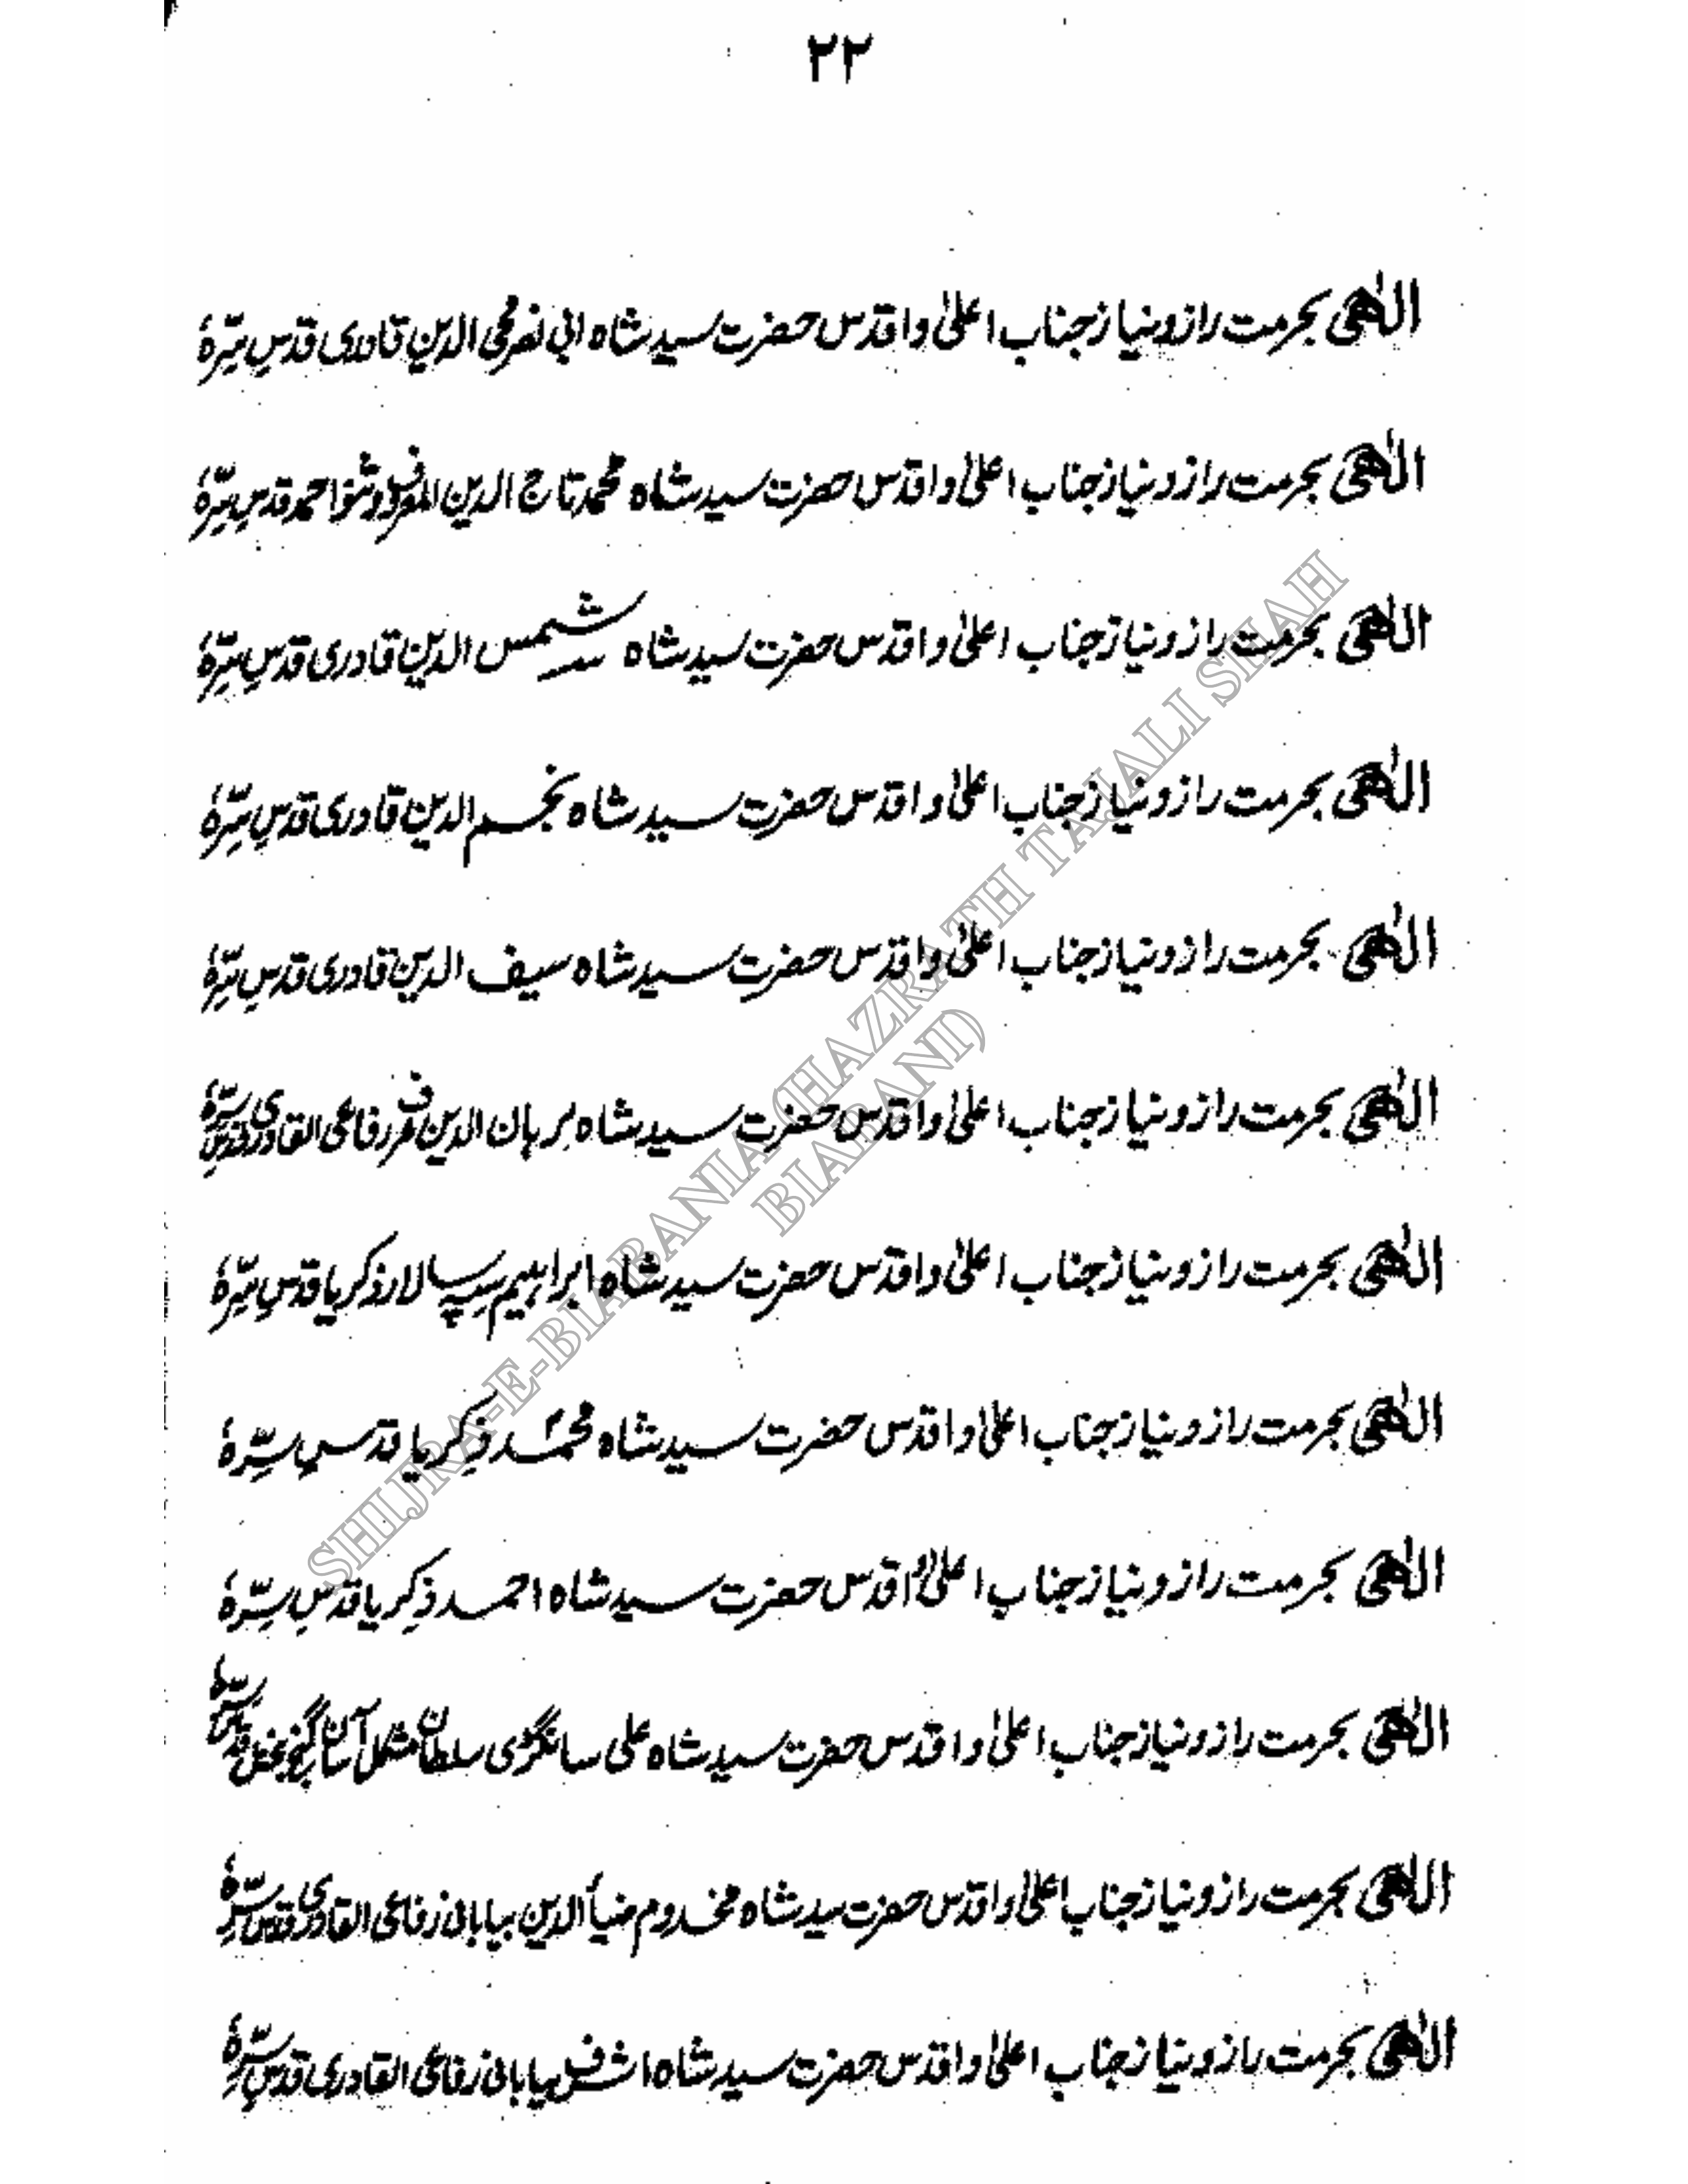 ۲۲
الٰھی بحرمت راز و نیاز جناب اعلیٰ و اقدس حضرت سید شاہ ابی نصر محی الدین قادری قدس سِرّہٗ
الٰھی بحرمت راز و نیاز جناب اعلیٰ و اقدس حضرت سید شاہ محمد تاج الدین احمد قدس سِرّہٗ
الٰھی بحرمت راز و نیاز جناب اعلیٰ و اقدس حضرت سید شاہ شمس الدین قادری قدس سِرّہٗ
الٰھی بحرمت راز و نیاز جناب اعلیٰ و اقدس حضرت سید شاہ نجم الدین قادری قدس سِرّہٗ
الٰھی بحرمت راز و نیاز جناب اعلیٰ و اقدس حضرت سید شاہ سیف الدین قادری قدس سِرّہٗ
الٰھی بحرمت راز و نیاز جناب اعلیٰ و اقدس حضرت سید شاہ برہان الدین رفاعی القادری قدس سِرّہٗ
الٰھی بحرمت راز و نیاز جناب اعلیٰ و اقدس حضرت سید شاہ ابراہیم سپہ سالار ذکریا قدس سِرّہٗ
الٰھی بحرمت راز و نیاز جناب اعلیٰ و اقدس حضرت سید شاہ محمّد ذکریا قدس سِرّہٗ
الٰھی بحرمت راز و نیاز جناب اعلیٰ و اقدس حضرت سید شاہ احمد ذکریا قدس سِرّہٗ
الٰھی بحرمت راز و نیاز جناب اعلیٰ و اقدس حضرت سید شاہ علی سانگڑی سلطان مشکل آسان گنج بخش قدس سِرّہٗ
الٰھی بحرمت راز و نیاز جناب اعلیٰ و اقدس حضرت سید شاہ مخدوم ضیأ الدین بیابانی رفاعی القادری قدس سِرّہٗ
الٰھی بحرمت راز و نیاز جناب اعلیٰ و اقدس حضرت سید شاہ اشرف بیابانی رفاعی القادری قدس سِرّہٗ
SHIJRA-E-BIABANIA (HAZRATH TAJALI SHAH
BIABANI)